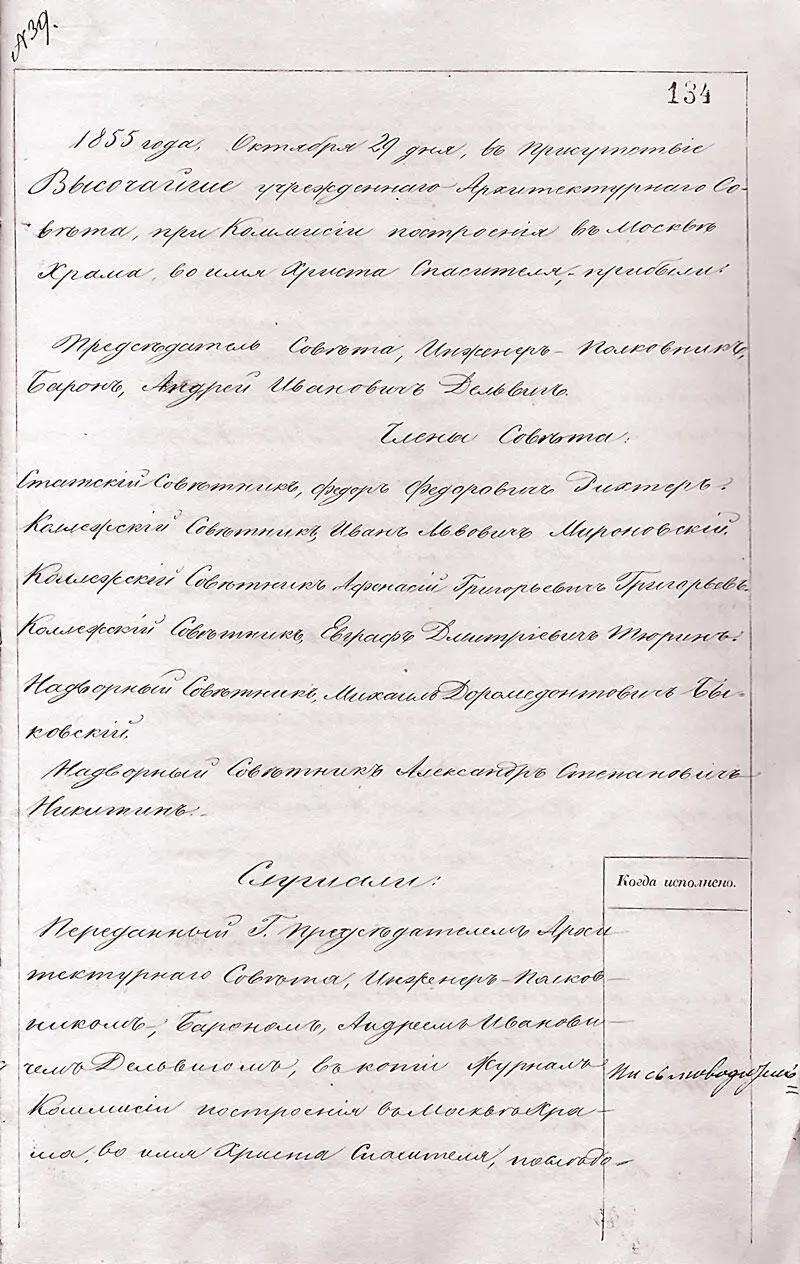 № 39.
134
1855 года, Октября 29 дня, въ присутствіе
Высочайше учрежденнаго Архитектурнаго Со-
вѣта, при Коммисіи построенія въ Москвѣ
Храма, во имя Христа Спасителя, прибыли:
Предсѣдатель Совѣта, Инженеръ-Полковникъ,
Баронъ, Андрей Ивановичъ Дельвигъ.
Члены Совѣта:
Статскій Совѣтникъ, Федоръ Федоровичъ Рихтеръ.
Коллежскій Совѣтникъ, Иванъ Львовичъ Мироновскій.
Коллежскій Совѣтникъ Афонасій Григорьевичъ Григорьевъ.
Коллежскій Совѣтникъ, Евграфъ Дмитріевичъ Тюринъ.
Надворный Совѣтникъ, Михаилъ Доромедонтовичъ Бы-
ковскій.
Надворный Совѣтникъ Александръ Степановичъ
Никитинъ.
Слушали:
Когда исполнено.
Переданный Г. Предсѣдателемъ Архи
тектурнаго Совѣта, Инженеръ-Полков-
никомъ, Барономъ, Андреемъ Иванови-
чемъ Дельвигомъ, въ копіи Журналъ
Письмоводитель
Коммисіи построенія въ Москвѣ Хра-
ма, во имя Христа Спасителя, послѣдо-